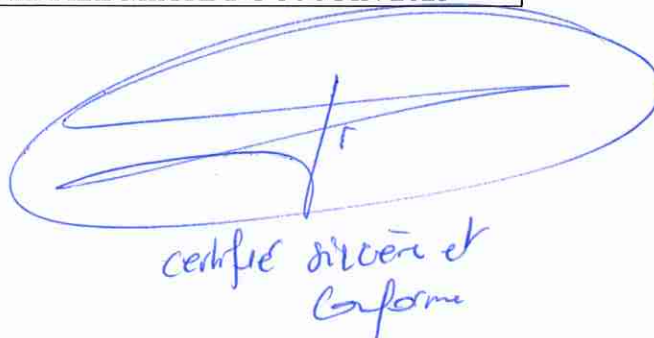 certifié sincère et
Conforme